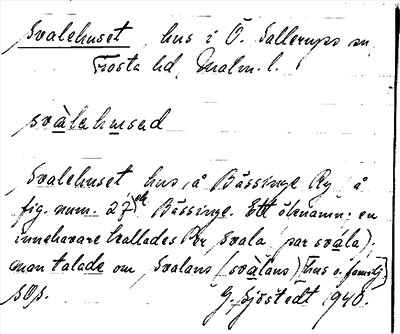 Svalehuset, hus i Ö. Sallerups sn,
Frosta hd, Malm. l.
svàlehused
Svalehuset hus å Bässinge By, å
fig. num. 27 Bässinge. Ett öknamn; en
innehavare kallades Per Svala (par svála);
man talade om Svalans (svàlans) [hus o. familj]
sos. G. Sjöstedt 1940.